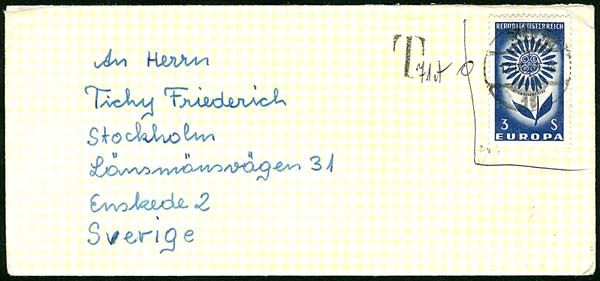 REPUBLIK ÖSTERREICH
T
3 S
EUROPA
An Herrn
Tichy Friederich
Stockholm
Länsmänsvägen 31
Enskede 2
Sverige